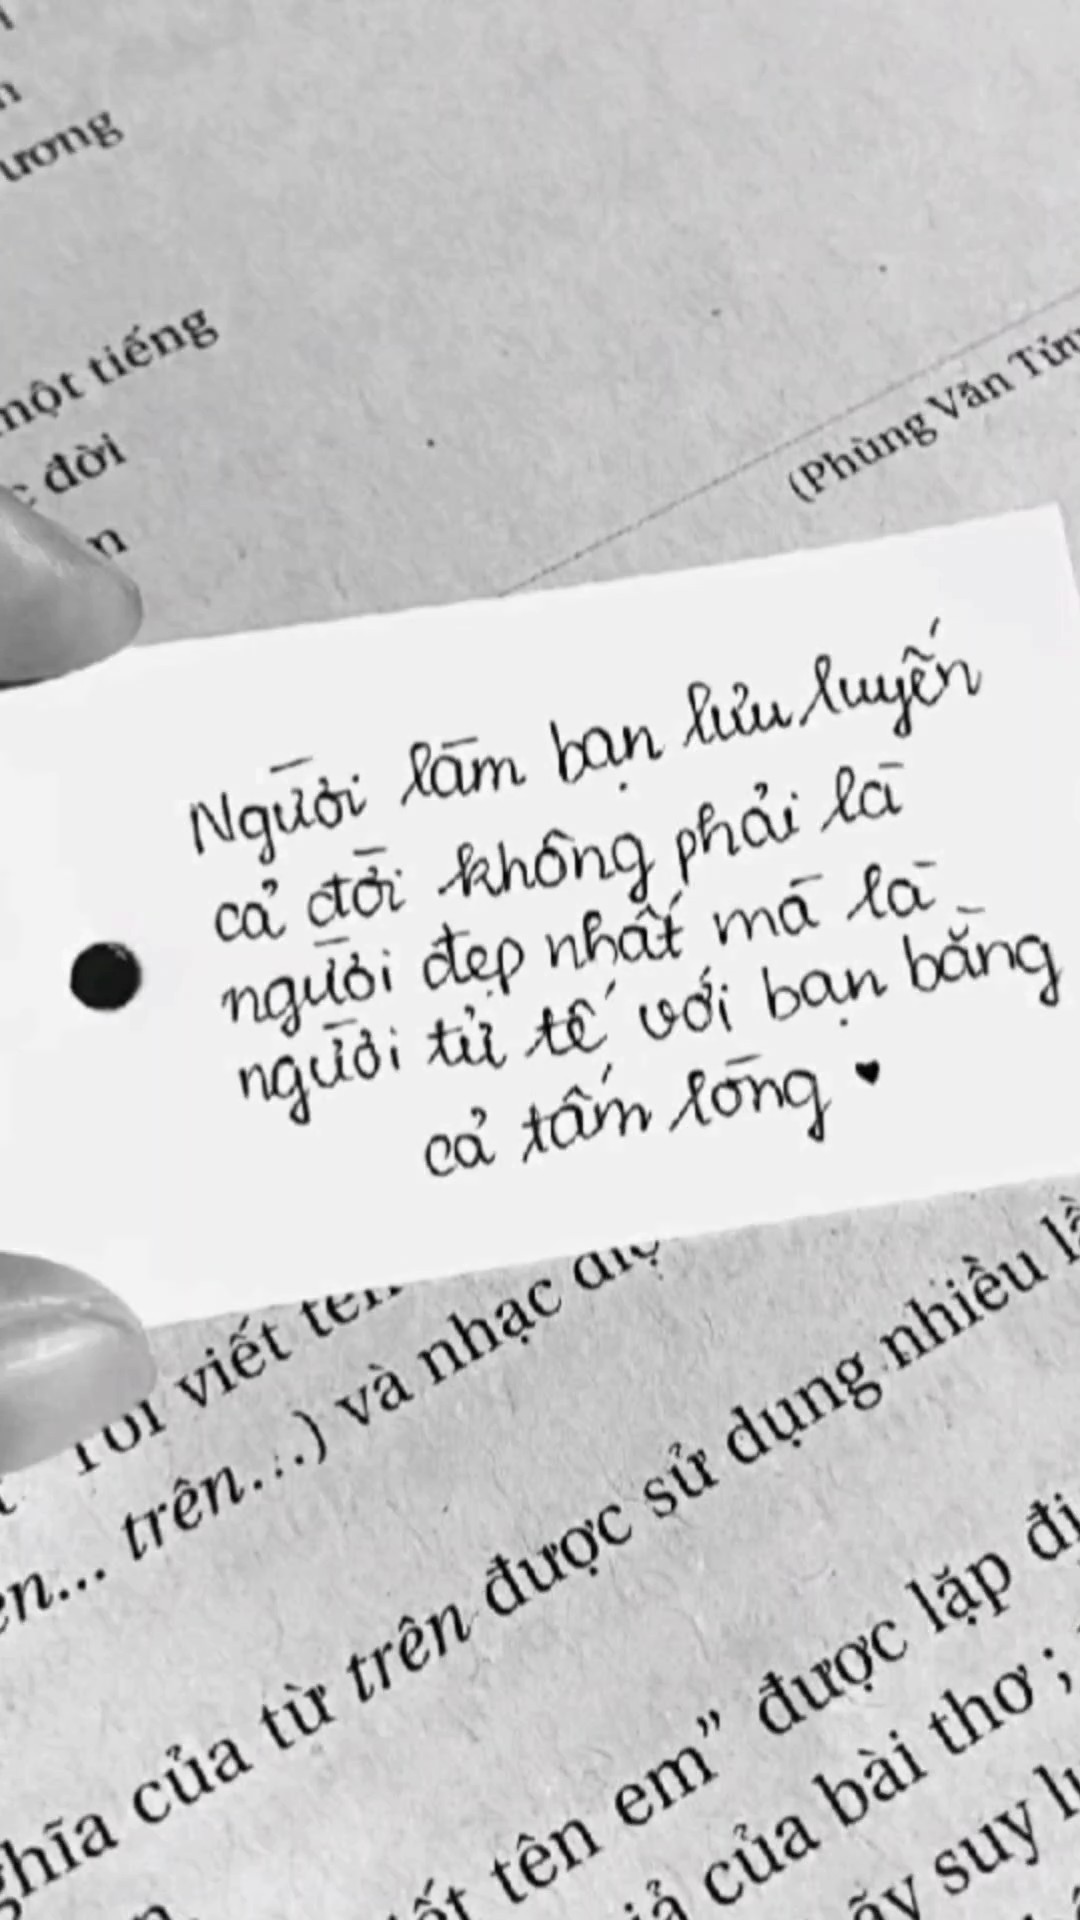 ương
một tiếng
đời
(Phùng Văn Tửu
Người làm bạn lưu luyến
cả đời không phải là
người đẹp nhất mà là
người tử tế với bạn bằng
cả tấm lòng ♥
Tôi viết tên
trên...) và nhạc điệ
trên... 
nghĩa của từ trên được sử dụng nhiều lầ
viết tên em” được lặp đị
giả của bài thơ ;
hãy suy